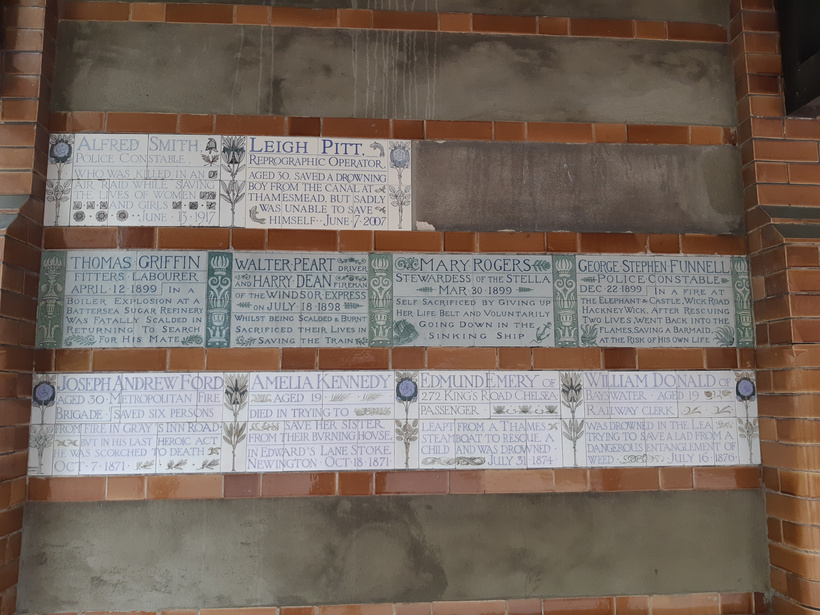 ALFRED SMITH,
POLICE CONSTABLE,
WHO WAS KILLED IN AN
AIR RAID WHILE SAVING
THE LIVES OF WOMEN
AND GIRLS
· JUNE · 13 · 1917
LEIGH PITT,
REPROGRAPHIC OPERATOR,
AGED 30, SAVED A DROWNING
BOY FROM THE CANAL AT
THAMESMEAD, BUT SADLY
WAS UNABLE TO SAVE
HIMSELF · JUNE · 7 · 2007
THOMAS GRIFFIN
FITTERS LABOURER
APRIL · 12 · 1899 IN A
BOILER EXPLOSION AT A
BATTERSEA SUGAR REFINERY
WAS FATALLY SCALDED IN
RETURNING TO SEARCH
FOR HIS MATE
WALTER PEART DRIVER
AND HARRY DEAN FIREMAN
OF THE WINDSOR EXPRESS
ON JULY · 18 · 1898
WHILST BEING SCALDED & BURNT
SACRIFICED THEIR LIVES IN
SAVING THE TRAIN
MARY ROGERS
STEWARDESS OF THE STELLA
MAR · 30 · 1899
SELF SACRIFICED BY GIVING UP
HER LIFE BELT AND VOLUNTARILY
GOING DOWN IN THE
SINKING SHIP
GEORGE STEPHEN FUNNELL
POLICE CONSTABLE
DEC · 22 · 1899 IN A FIRE AT
THE ELEPHANT & CASTLE, WICK ROAD
HACKNEY WICK, AFTER RESCUING
TWO LIVES, WENT BACK INTO THE
FLAMES, SAVING A BARMAID
AT THE RISK OF HIS OWN LIFE
JOSEPH ANDREW FORD
AGED 30 · METROPOLITAN FIRE
BRIGADE · SAVED SIX PERSONS
FROM FIRE IN GRAY'S INN ROAD
BUT IN HIS LAST HEROIC ACT
HE WAS SCORCHED TO DEATH
OCT · 7 · 1871 ·
AMELIA KENNEDY
AGED 19
DIED IN TRYING TO
SAVE HER SISTER
FROM THEIR BVRNING HOVSE,
IN EDWARD'S LANE STOKE
NEWINGTON OCT · 18 · 1871
EDMUND EMERY OF
272 KING'S ROAD CHELSEA
PASSENGER
LEAPT FROM A THAMES
STEAMBOAT TO RESCUE A
CHILD AND WAS DROWNED
JULY 31 1874
WILLIAM DONALD OF
BAYSWATER AGED 19
RAILWAY CLERK
WAS DROWNED IN THE LEA
TRYING TO SAVE A LAD FROM A
DANGEROUS ENTANGLEMENT OF
WEED JULY 16 · 1876